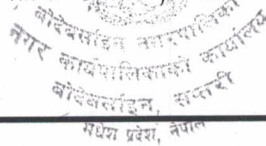 बोदेबरसाईन नगरपालिका
नगर कार्यपालिकाको कार्यालय
बोदेबरसाईन, सप्तरी
मधेश प्रदेश, नेपाल